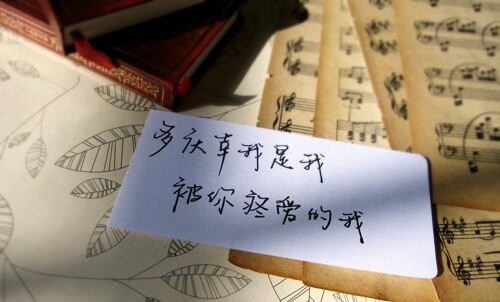 多庆幸我是我
被你疼爱的我